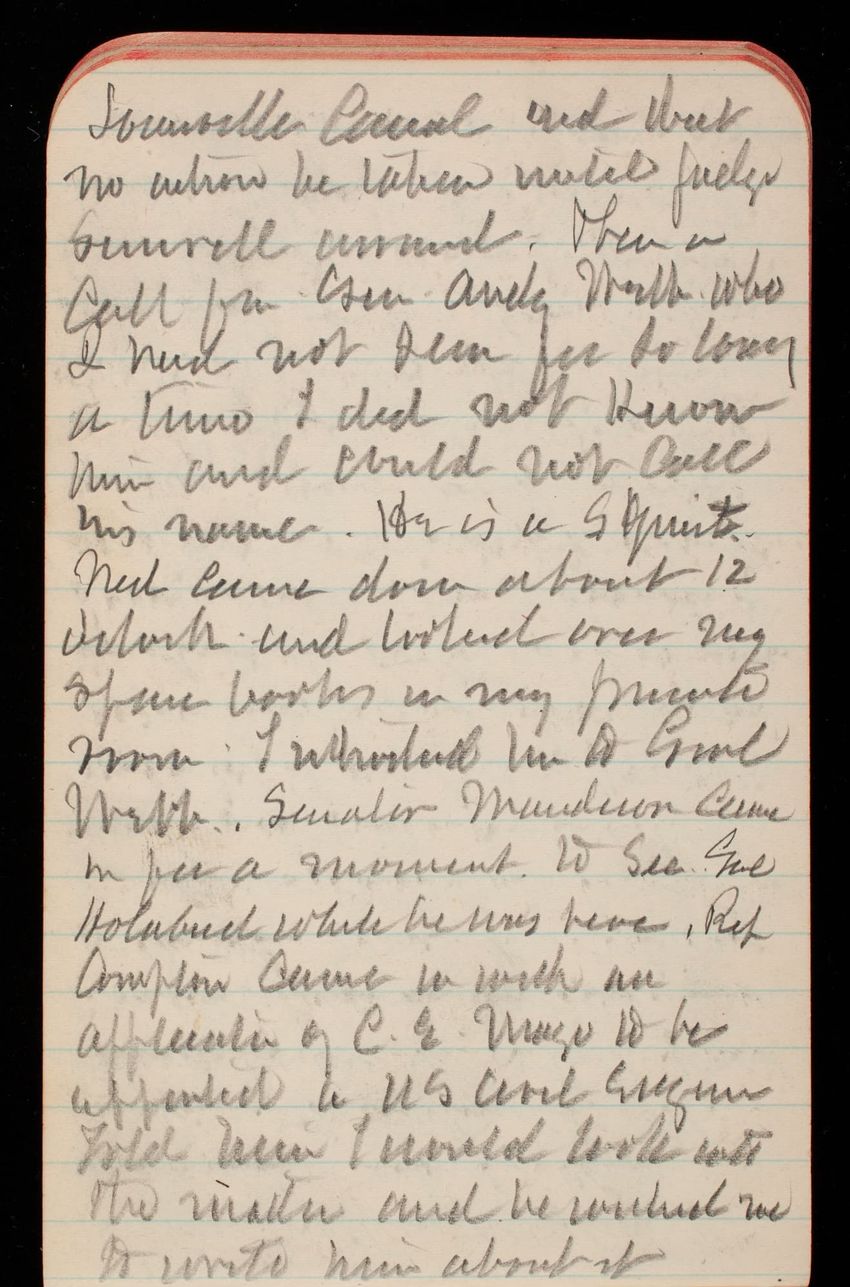 Louisville Canal and that
no action be taken until Judge
arrived. Then a
Call from Gen Andy Webb who
I had not seen for so long
a time I did not know
him and could not call
his name. He is a
Ned came down about 12
oclock and looked over my
spare books in my private
room. I introduced him to Genl
Webb. Senator Manderson came
in for a moment to see Gnl
Holabird while he was here. Rep
Compton came in with an
application of C. E. to be
appointed a US Civil Engineer
Told him I would look into
the matter and he wished me
to write him about it